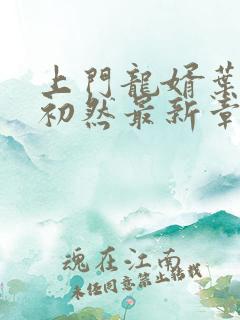 上門龍婿葉
初然最新章
魂在江南
未经同意禁止转载